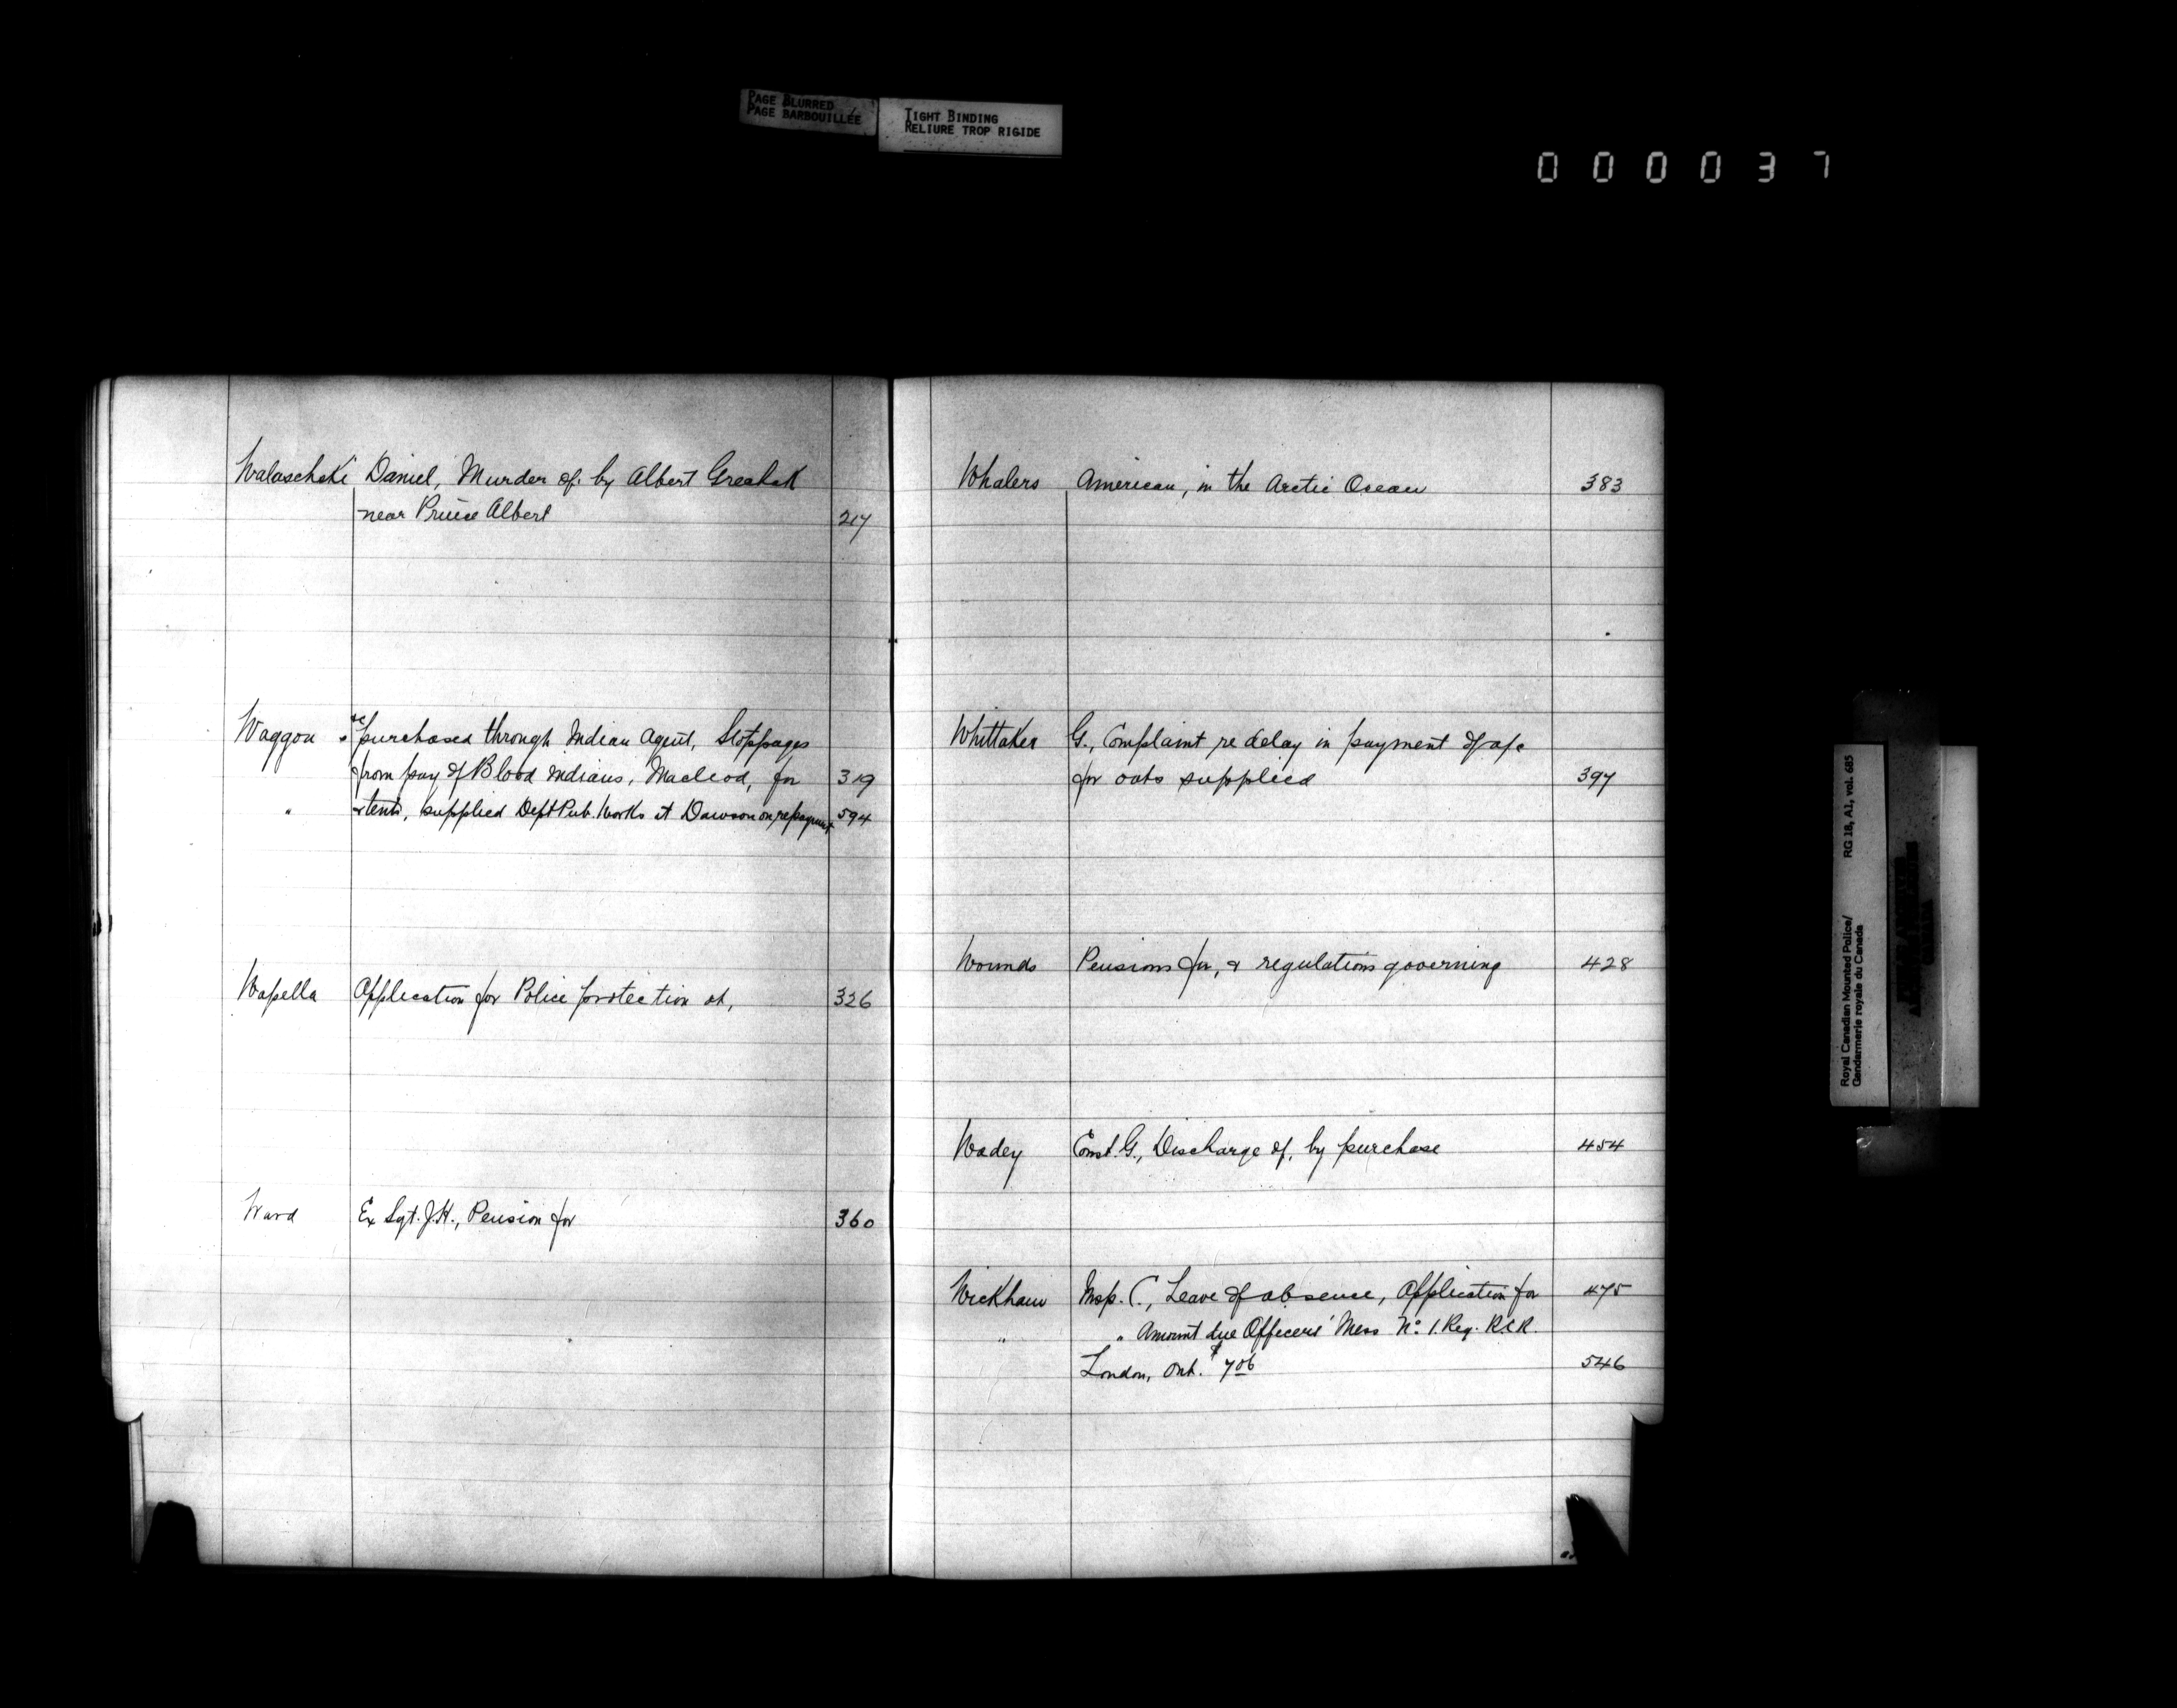 PAGE BLURRED
PAGE BARBOUILLÉE
TIGHT BINDING
RELIURE TROP RIGIDE
000037
Walaschski Daniel, Murder of, by Albert
near Prince Albert 217
Waggon &c purchased through Indian Agent, Stoppages
from pay of Blood Indians, Macleod, for 319
" & tents, supplied Dept Pub. Works at Dawson on repayment 594
Wapella Application for Police protection at, 326
Ward Ex Sgt. J.H., Pension for 360
Whalers American, in the Arctic Ocean 383
Whittaker G., Complaint re delay in payment of a/c
for oats supplied 397
Wounds Pensions for, & regulations governing 428
Wadey Const. G., Discharge of, by purchase 454
Wickham Insp. C., Leave of absence, Application for 475
" " Amount due Officers' Mess No. 1. Reg. R.C.R.
London, Ont. $7.06 546
Royal Canadian Mounted Police/ RG 18, A1, vol. 685
Gendarmerie royale du Canada